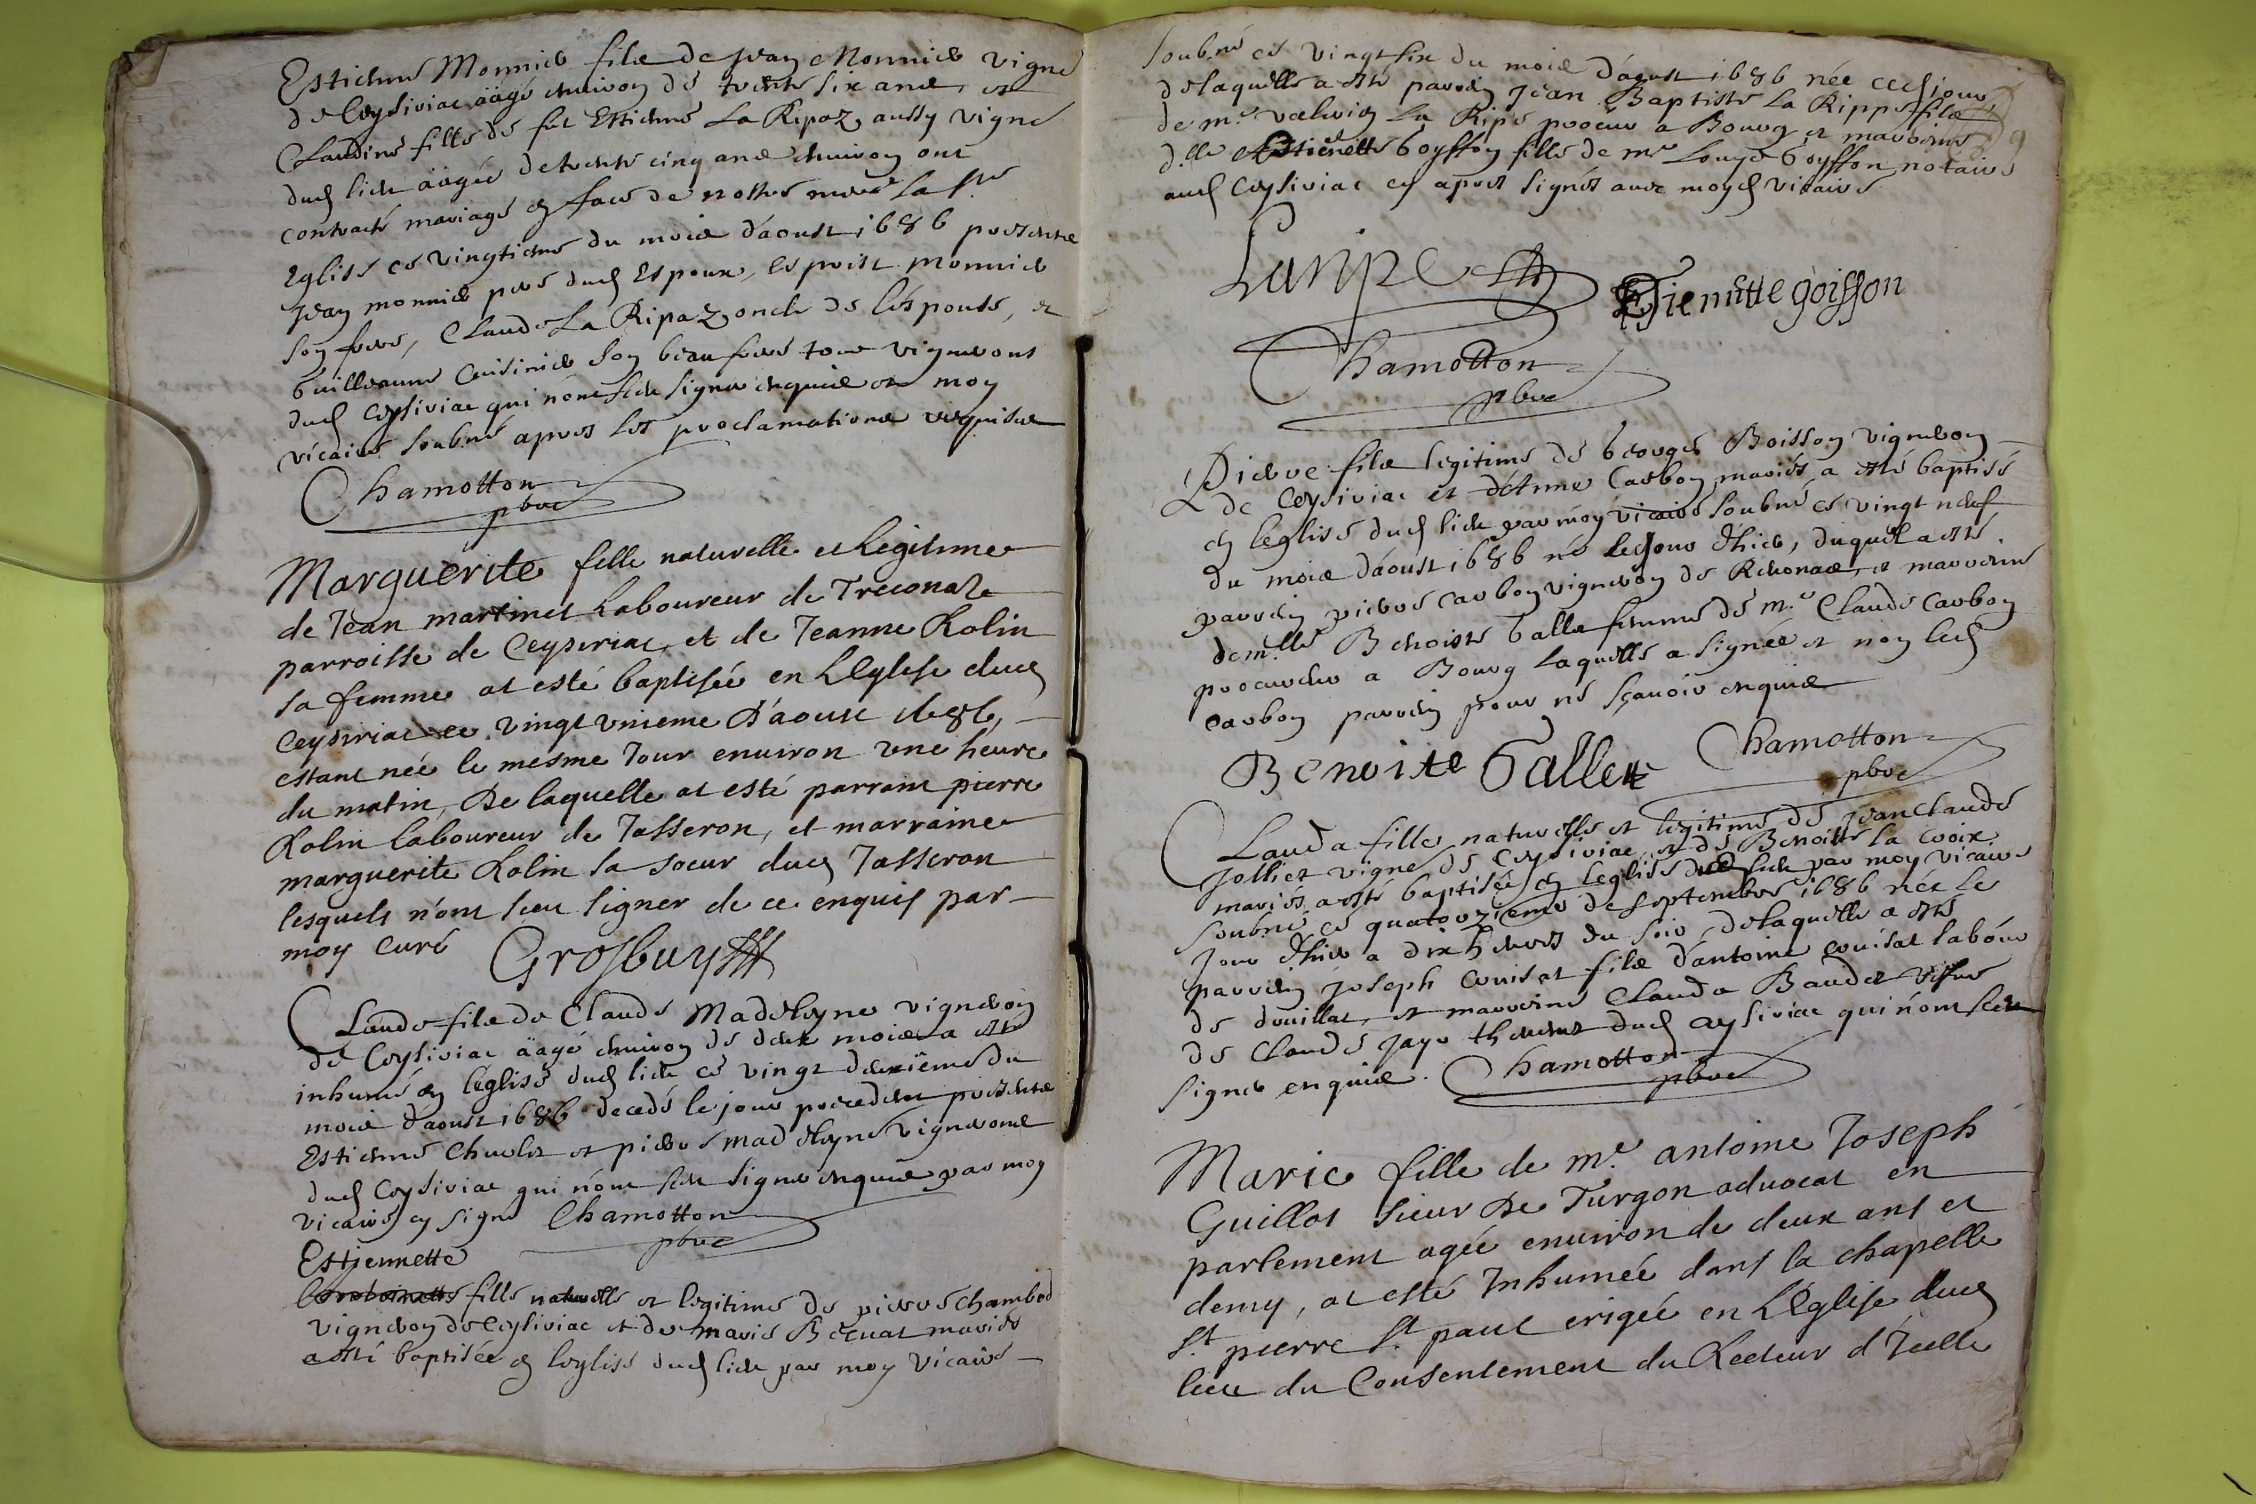 Estienne Monnier filz de Jean Monnier vigne
de Ceysiriac äagé environ de trente six ans, et
Claudine fille de fut Estienne La Ripaz, aussy vigne
dud lieu äagée de trente cinq ans environ ont
contracté mariage en face de nostre mere la ste
Eglise ce vingtiesme du mois d'aoust 1686 presents
Jean monnier pere dud Espoux, monnier
son frere, Claude La Ripaz oncle de l'espouse, et
Guillaume Cuisinier son beau frere tous vignerons
dud Ceysiriac qui n'ont sceu signer enquis et moy
vicaire soubné apres les proclamations requises
Chamotton
pbre
Marguerite fille naturelle et legitime
de Jean martinet Laboureur de Treconaz
parroisse de Ceysiriac, et de Jeanne Rolin
sa femme at esté baptisée en L'Eglise dud
Ceysiriac ce vingt vnieme D'aoust 1686,
estant née le mesme Jour enuiron vne heure
du matin, De laquelle at esté parrain pierre
Rolin laboureur de Jasseron, et marraine
marguerite Rolin sa soeur dud Jasseron
lesquels n'ont sceu signer de ce enquis par
moy curé Grosbuy
Claude filz de Claude Madeleyne vigneron
de Ceysiriac äagé environ de deux mois a esté
inhumé en l'eglise dud lieu ce vingt deuxiéme du
mois d'aoust 1686 decedé le jour precedent presents
Estienne Chuolet et pierre madeleyne vignerons
dud Ceysiriac qui n'ont sceu signer enquis par moy
vicaire cy signé Chamotton
pbre
Estiennette
fille naturelle et legitime de pierre Chambod
vigneron de Ceysiriac et de marie Becuat mariés
a esté baptisée en l'eglise dud lieu par moy vicaire
soubné ce vingt six du mois d'aoust 1686 née ced jour,
de laquelle a esté parrein Jean Baptiste La Rippe filz
de me La Ripe procur a Bourg et marreine
dlle Estienette Goyffon fille de me Louys Goyffon notaire
aud Ceysiriac cy apres signés avec moyd vicaire
Laripe Etiennette goiffon
Chamotton
pbre
Pierre filz legitime de George Boisson vigneron
de Ceysiriac et d'Anne Carbon mariés a esté baptisé
en l'eglise dud lieu par moy vicaire soubné ce vingt neuf
du mois d'aoust 1686 né le jour d'hier, duquel a esté
parrein pierre Carbon vigneron de Reuonas, et marreine
demlle Benoiste Galle femme de me Claude Carbon
procureur a Bourg laquelle a signée et non led
Carbon parrein pour ne sçavoir enquis
Benoite Gallet Chamotton
pbre
Clauda fille naturelle et legitime de Jean Claude
Jollier vigne de Ceysiriac, et de Benoitte la Croix
mariés a esté baptisée en l'eglise dud lieu par moy vicaire
soubné ce quatorzieme de septembre 1686 née le
jour d'hier a dix heures du soir, de laquelle a esté
parrein joseph Cuisat filz d'antoine Cuisat labour
de druillat, et marreine Clauda Baudet vefue
de Claude Jayr dud Ceysiriac qui n'ont sceu
signer enquis. Chamotton
pbre
Marie fille de me. antoine Joseph
Guillot sieur De Turgon aduocat en
parlement agée enuiron de deux ans et
demy, at esté Inhumée dans la chapelle
St. pierre St. paul erigée en L'Eglise dud
lieu du Consentement du Recteur d'Icelle